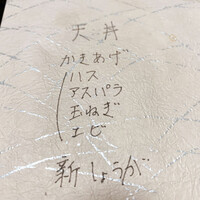 天丼
かきあげ
ハス
アスパラ
玉ねぎ
エビ
新しょうが